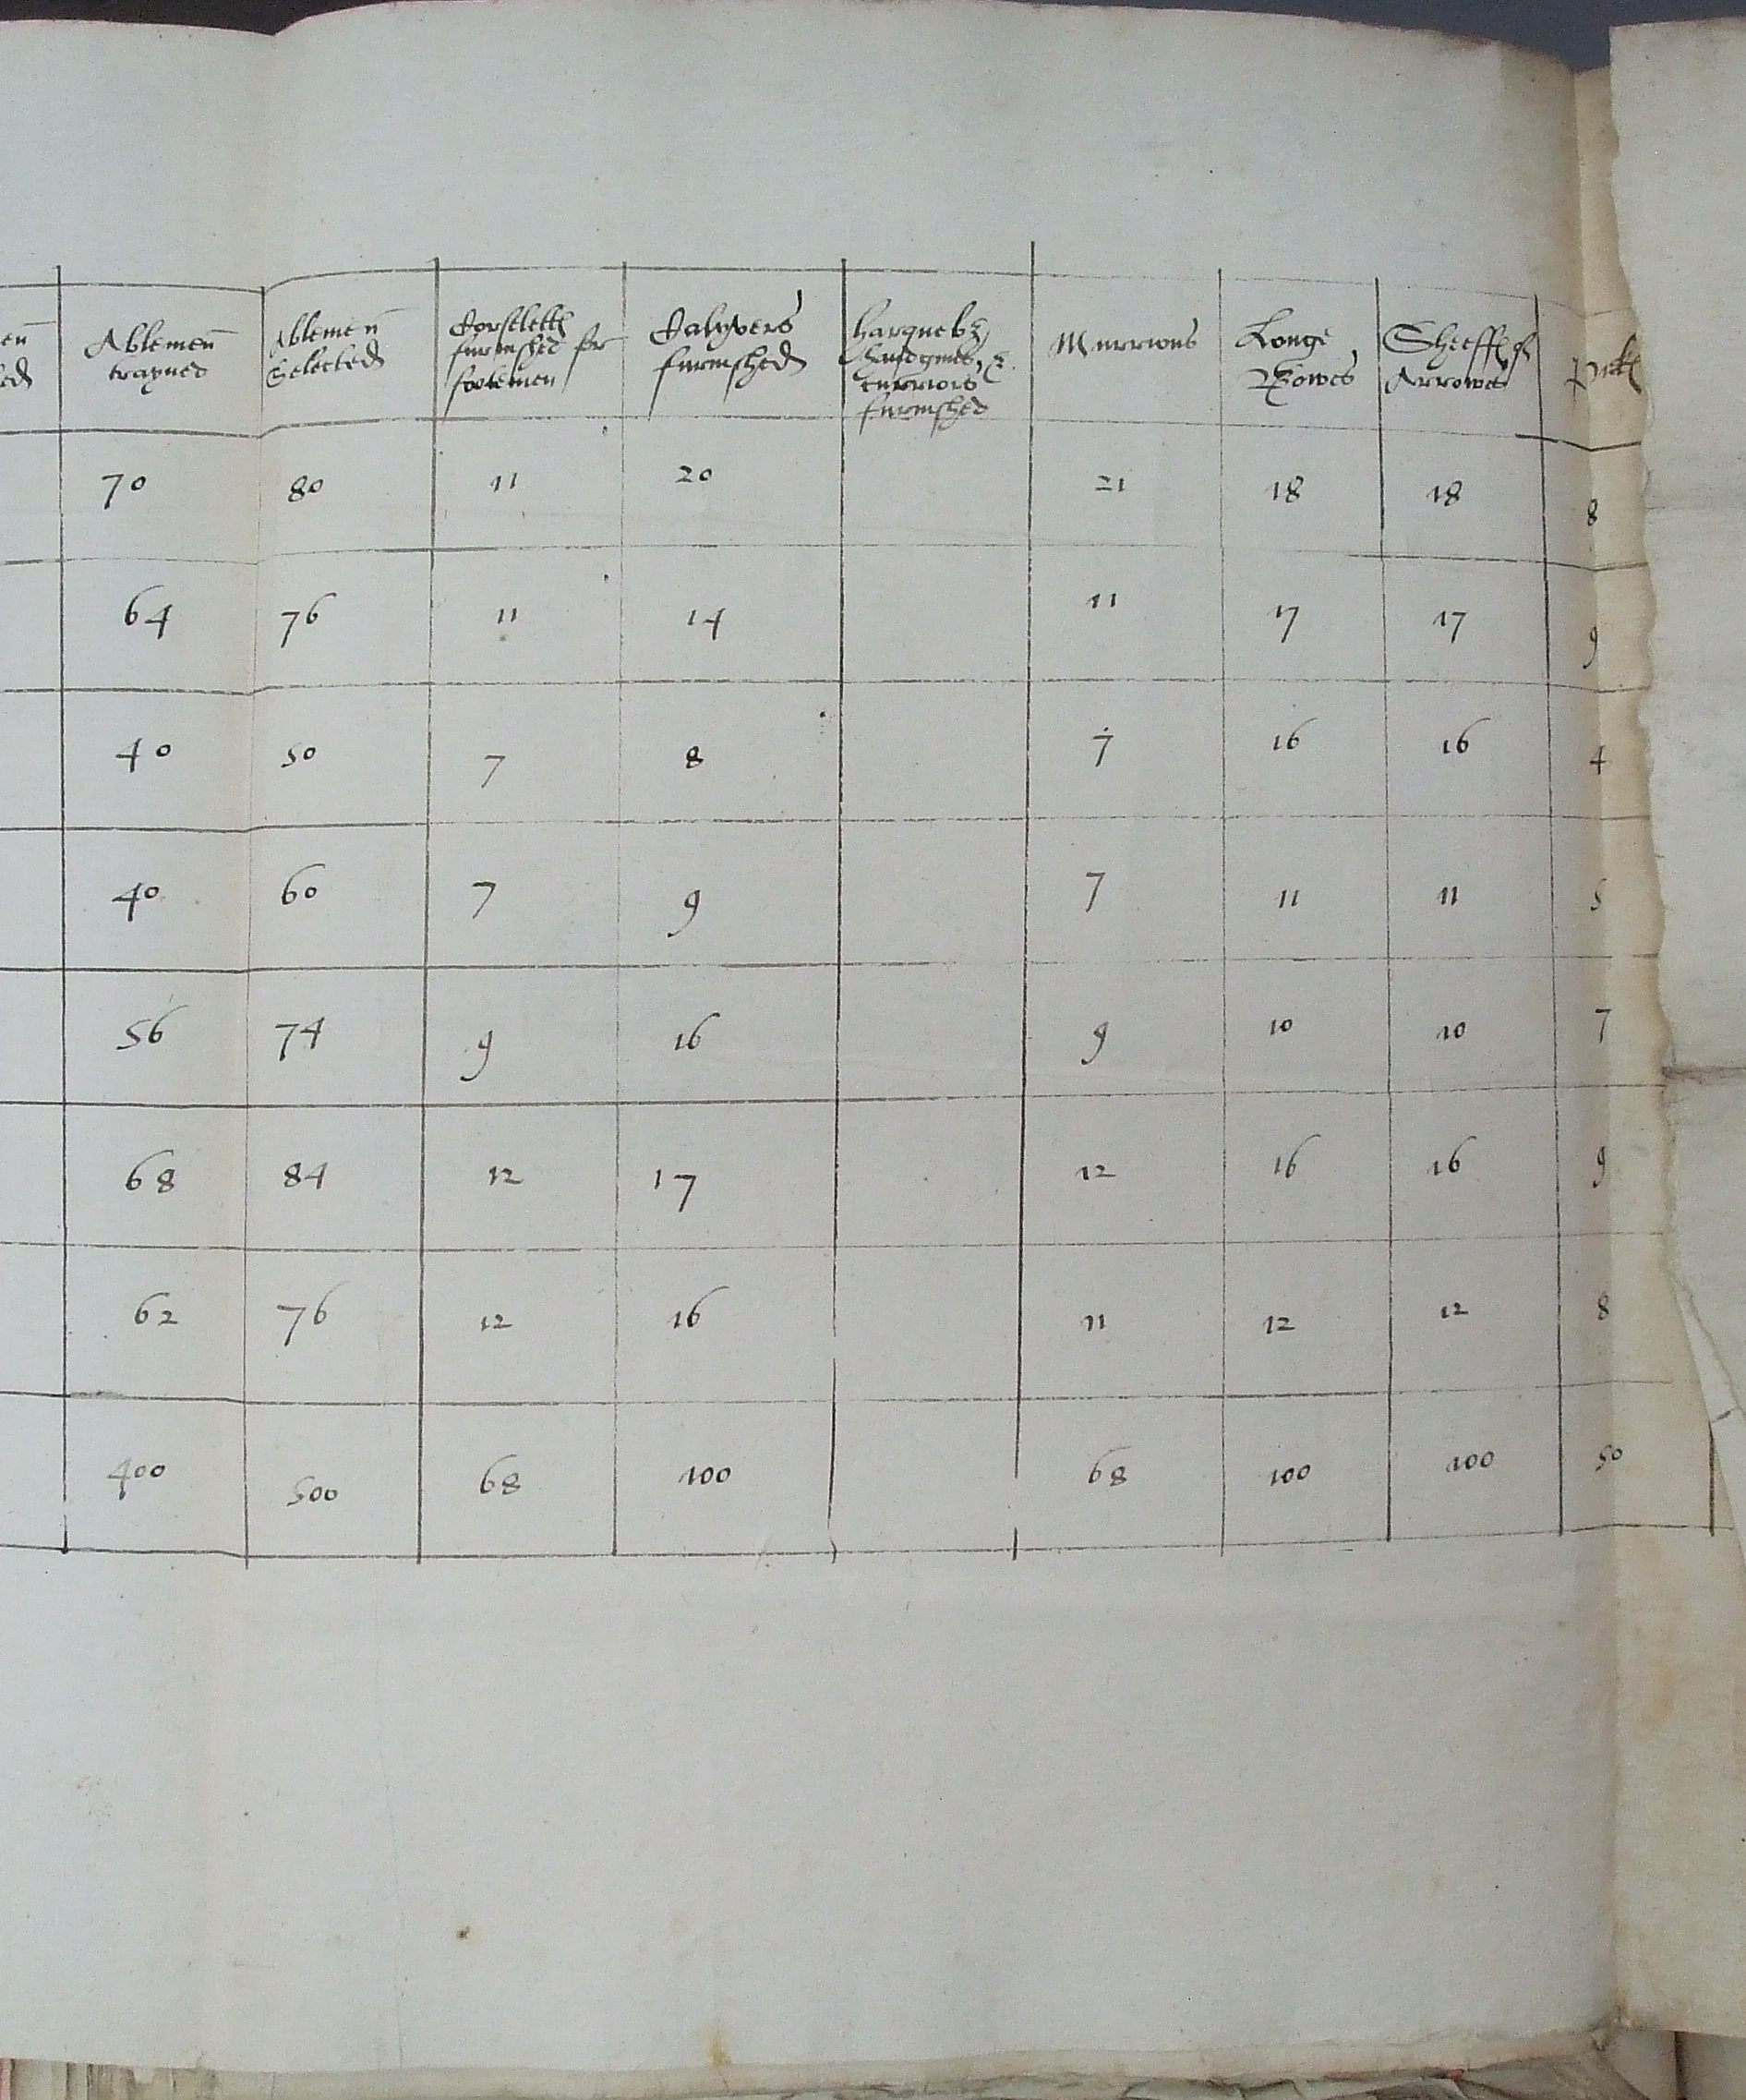 Ablemen trayned
Ablemen Selected
Corselettes furnished for footemen
Calyvers furnished
harquebz furnished
Murrions
Longe Bowes
Sheeffes of Arrowes
70 80 11 20 21 18 18 8
64 76 11 14 11 17 17 9
40 50 7 8 7 16 16 4
40 60 7 9 7 11 11 5
56 74 9 16 9 10 10 7
68 84 12 17 12 16 16 9
62 76 12 16 11 12 12 8
400 500 68 100 68 100 100 50